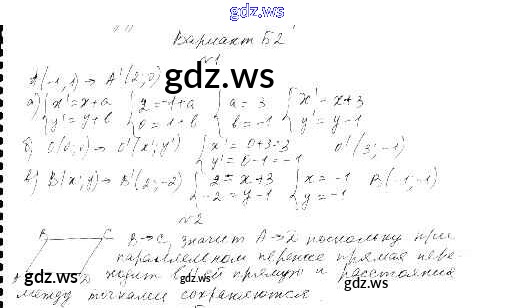 gdz.ws
Вариант Б2
№1
A(-1;1) → A'(2;0)
gdz.ws
а) { x' = x+a { 2 = -1+a { a = 3 { x' = x+3
y' = y+b 0 = 1+b b = -1 y' = y-1
б) O(0;0) → O'(x';y') { x' = 0+3=3 O'(3;-1)
y' = 0-1=-1
в) B(x;y) → B'(2;-2) { 2 = x+3 { x = -1 B(-1;-1)
-2 = y-1 y = -1
№2
B C B→C, значит A→D поскольку при
параллельном переносе прямая пере-
A D ходит в прямую и расстояния
между точками сохраняются
gdz.ws gdz.ws
gdz.ws